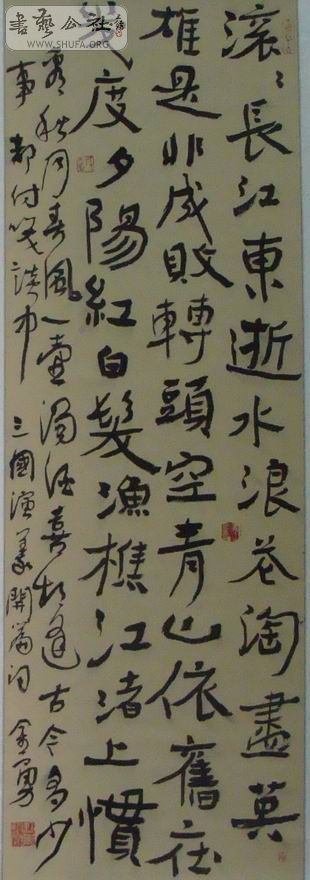 書藝公社
WWW.SHUFA.ORG
滚〻長江東逝水浪花淘盡英
雄是非成敗轉頭空青山依舊在
幾度夕陽紅白髮漁樵江渚上慣
看秋月春風一壺濁酒喜相逢古今多少
事都付笑談中 三國演義開篇詞